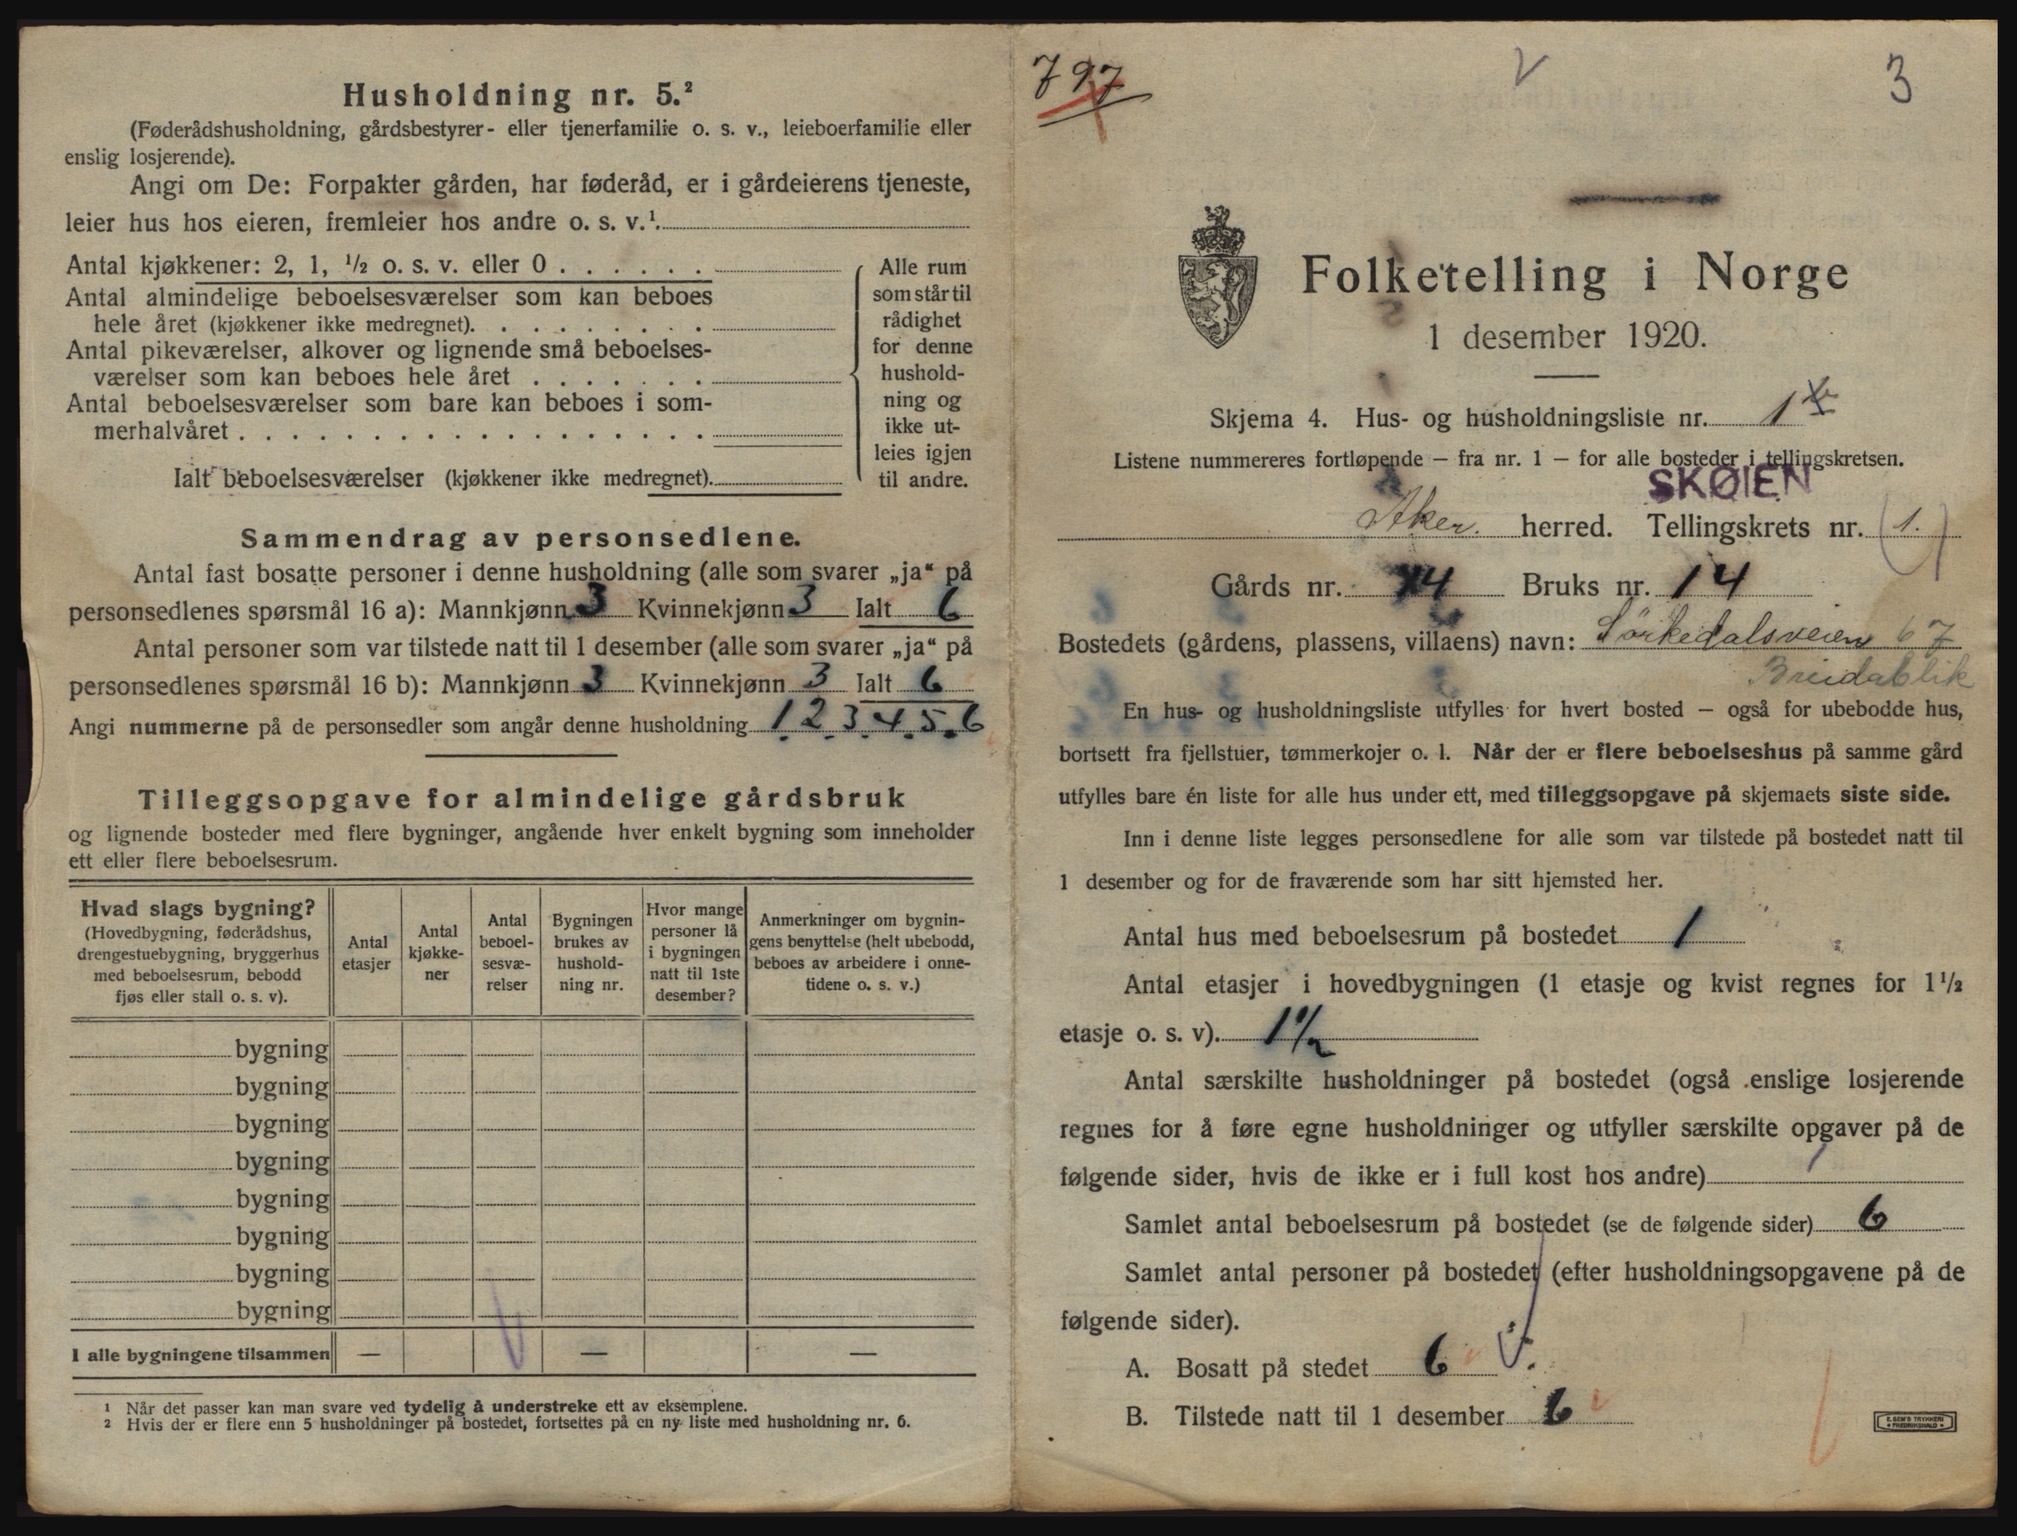 Husholdning nr. 5.²
(Føderådshusholdning, gårdsbestyrer- eller tjenerfamilie o. s. v., leieboerfamilie eller
enslig losjerende).
Angi om De: Forpakter gården, har føderåd, er i gårdeierens tjeneste,
leier hus hos eieren, fremleier hos andre o. s. v.¹.
Antal kjøkkener: 2, 1, ½ o. s. v. eller 0
Antal almindelige beboelsesværelser som kan beboes
hele året (kjøkkener ikke medregnet).
Antal pikeværelser, alkover og lignende små beboelses-
værelser som kan beboes hele året
Antal beboelsesværelser som bare kan beboes i som-
merhalvåret
Ialt beboelsesværelser (kjøkkener ikke medregnet).
Alle rum
som står til
rådighet
for denne
hushold-
ning og
ikke ut-
leies igjen
til andre.
Sammendrag av personsedlene.
Antal fast bosatte personer i denne husholdning (alle som svarer „ja“ på
personsedlenes spørsmål 16 a): Mannkjønn 3 Kvinnekjønn 3 Ialt 6
Antal personer som var tilstede natt til 1 desember (alle som svarer „ja“ på
personsedlenes spørsmål 16 b): Mannkjønn 3 Kvinnekjønn 3 Ialt 6
Angi nummerne på de personsedler som angår denne husholdning 1.2.3.4.5.6
Tilleggsopgave for almindelige gårdsbruk
og lignende bosteder med flere bygninger, angående hver enkelt bygning som inneholder
ett eller flere beboelsesrum.
Hvad slags bygning?
(Hovedbygning, føderådshus,
drengestuebygning, bryggerhus
med beboelsesrum, bebodd
fjøs eller stall o. s. v).
Antal
etasjer
Antal
kjøkke-
ner
Antal
beboel-
sesvæ-
relser
Bygningen
brukes av
hushold-
ning nr.
Hvor mange
personer lå
i bygningen
natt til 1ste
desember?
Anmerkninger om bygnin-
gens benyttelse (helt ubebodd,
beboes av arbeidere i onne-
tidene o. s. v.)
bygning
bygning
bygning
bygning
bygning
bygning
bygning
bygning
I alle bygningene tilsammen — — —
¹ Når det passer kan man svare ved tydelig å understreke ett av eksemplene.
² Hvis der er flere enn 5 husholdninger på bostedet, fortsettes på en ny liste med husholdning nr. 6.
797
3
Folketelling i Norge
1 desember 1920.
Skjema 4. Hus- og husholdningsliste nr. 1
Listene nummereres fortløpende — fra nr. 1 — for alle bosteder i tellingskretsen.
SKØIEN
Aker. herred. Tellingskrets nr. (1.)
Gårds nr. 14 Bruks nr. 14
Bostedets (gårdens, plassens, villaens) navn: Sörkedalsveien 67
Breidablik
En hus- og husholdningsliste utfylles for hvert bosted — også for ubebodde hus,
bortsett fra fjellstuer, tømmerkojer o. l. Når der er flere beboelseshus på samme gård
utfylles bare én liste for alle hus under ett, med tilleggsopgave på skjemaets siste side.
Inn i denne liste legges personsedlene for alle som var tilstede på bostedet natt til
1 desember og for de fraværende som har sitt hjemsted her.
Antal hus med beboelsesrum på bostedet 1
Antal etasjer i hovedbygningen (1 etasje og kvist regnes for 1½
etasje o. s. v). 1½
Antal særskilte husholdninger på bostedet (også enslige losjerende
regnes for å føre egne husholdninger og utfyller særskilte opgaver på de
følgende sider, hvis de ikke er i full kost hos andre) 1
Samlet antal beboelsesrum på bostedet (se de følgende sider) 6
Samlet antal personer på bostedet (efter husholdningsopgavene på de
følgende sider).
A. Bosatt på stedet 6
B. Tilstede natt til 1 desember 6
E. SEM'S TRYKKERI
FREDRIKSHALD